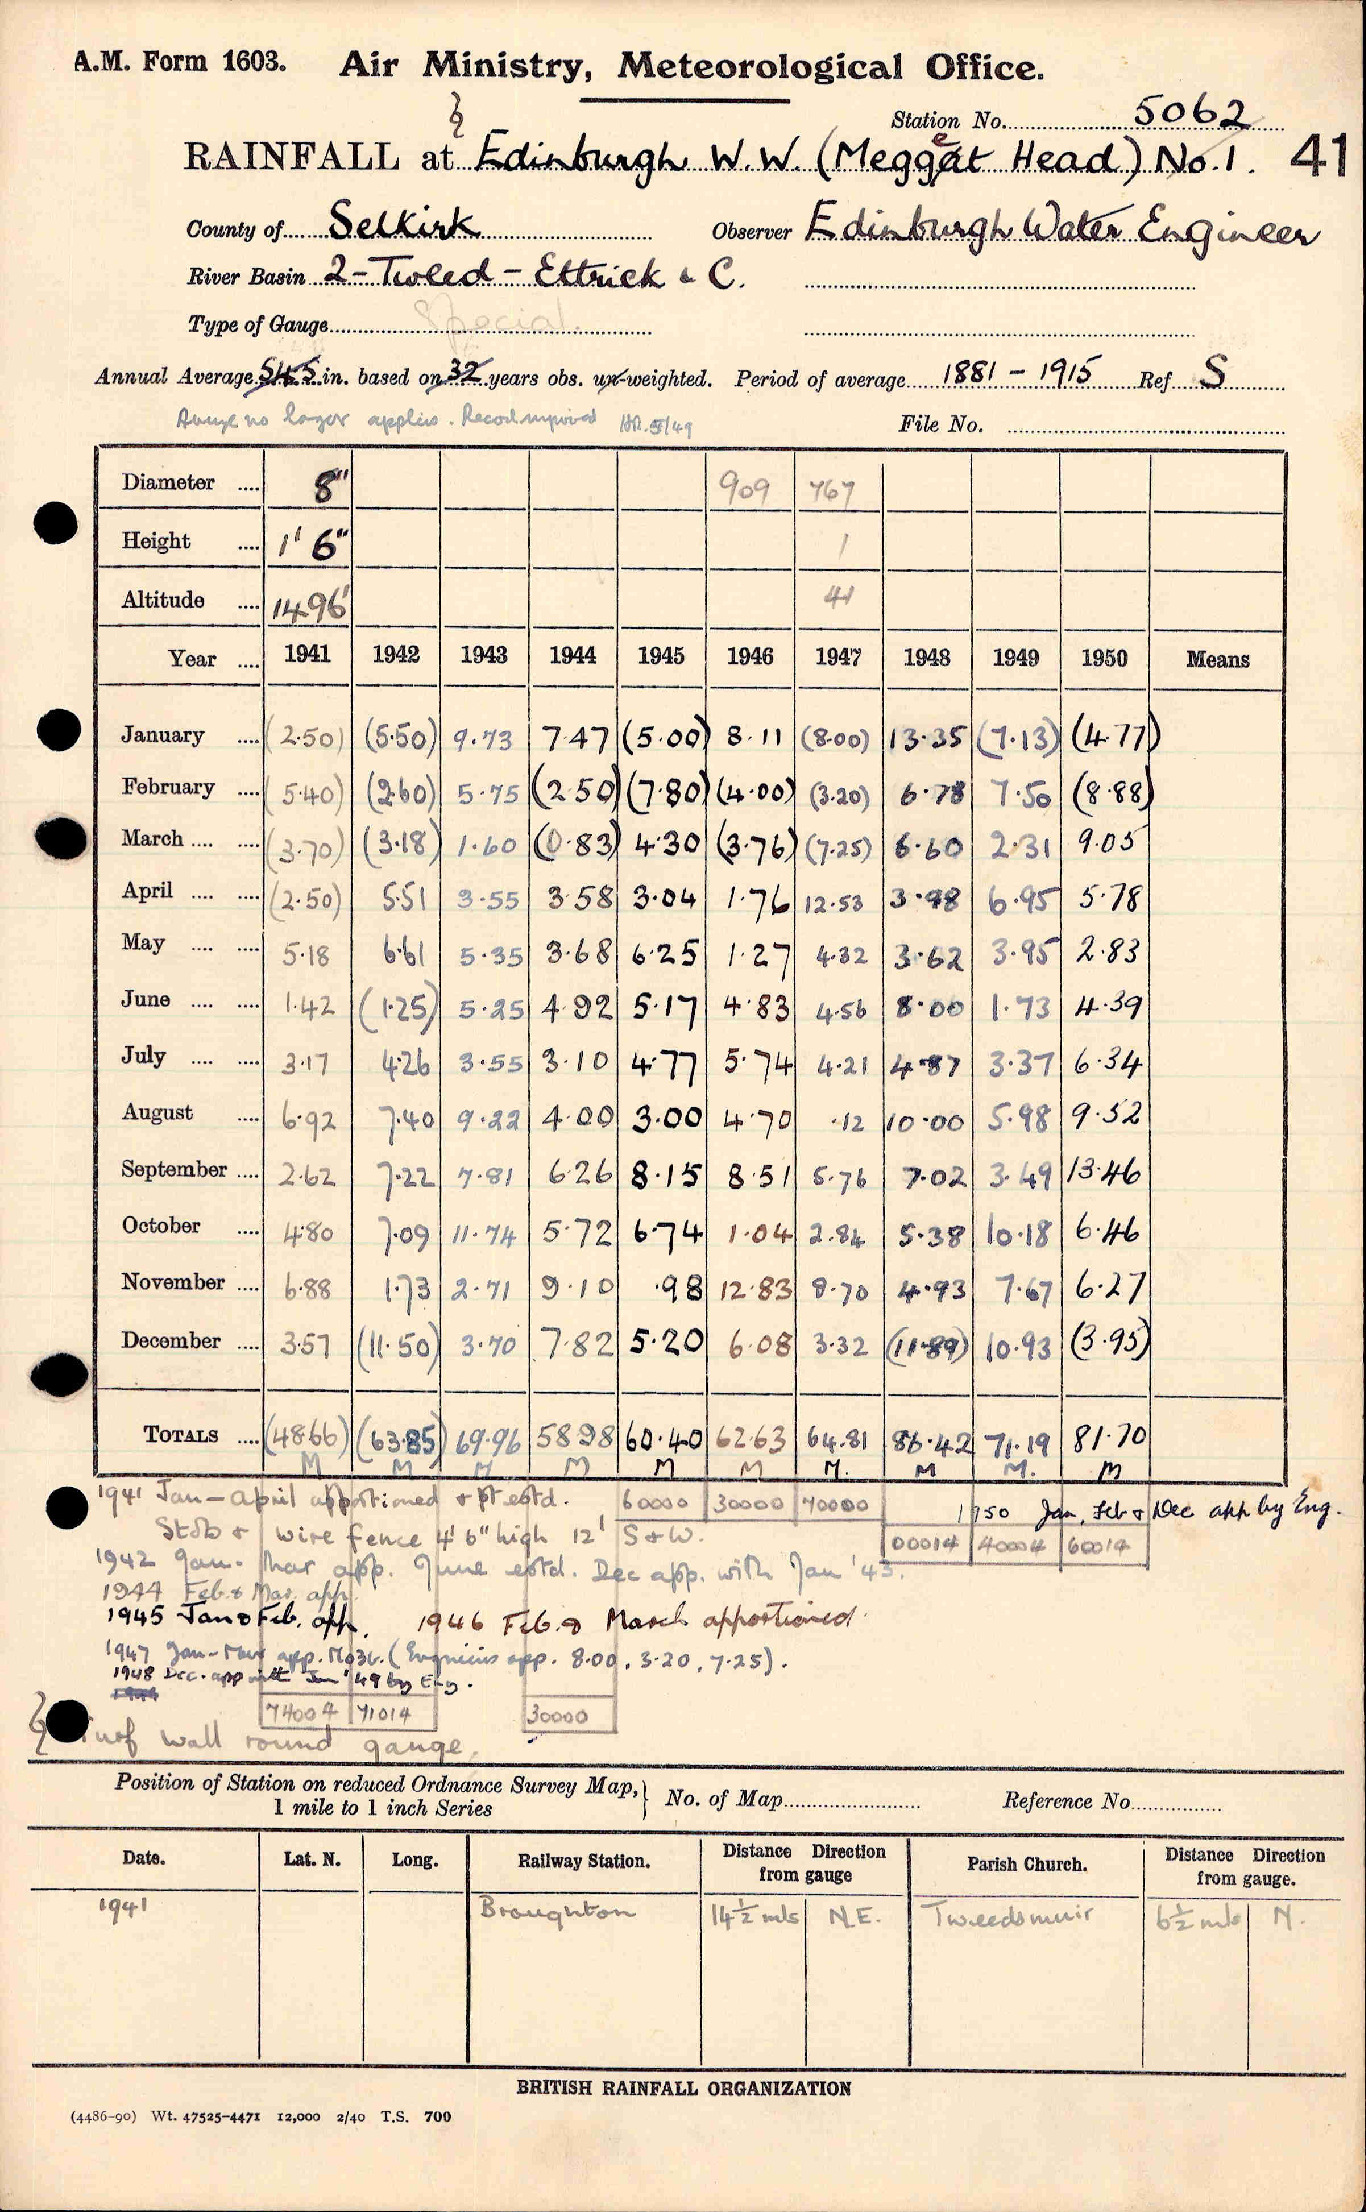 A.M. Form 1603. Air Ministry, Meteorological Office.
Station No. 5062
RAINFALL at Edinburgh W.W. (Megget Head) No.1. 41
County of Selkirk Observer Edinburgh Water Engineer
River Basin 2-Tweed - Ettrick & C.
Type of Gauge Special.
Annual Average 54.5 in. based on 32 years obs. un-weighted. Period of average 1881 - 1915 Ref S
no longer applies. Record 5/49
File No.
Diameter .... 8" 909 767
Height .... 1' 6" 1
Altitude .... 1496' 41
Year .... 1941 1942 1943 1944 1945 1946 1947 1948 1949 1950 Means
January .... (2.50) (5.50) 9.73 7.47 (5.00) 8.11 (8.00) 13.35 (7.13) (4.77)
February .... (5.40) (2.60) 5.75 (2.50) (7.80) (4.00) (3.20) 6.78 7.50 (8.88)
March .... .... (3.70) (3.18) 1.60 (0.83) 4.30 (3.76) (7.25) 6.60 2.31 9.05
April .... .... (2.50) 5.51 3.55 3.58 3.04 1.76 12.53 3.98 6.95 5.78
May .... .... 5.18 6.61 5.35 3.68 6.25 1.27 4.32 3.62 3.95 2.83
June .... .... 1.42 (1.25) 5.25 4.92 5.17 4.83 4.56 8.00 1.73 4.39
July .... .... 3.17 4.26 3.55 3.10 4.77 5.74 4.21 4.87 3.37 6.34
August .... 6.92 7.40 9.22 4.00 3.00 4.70 .12 10.00 5.98 9.52
September .... 2.62 7.22 7.81 6.26 8.15 8.51 5.76 7.02 3.49 13.46
October .... 4.80 7.09 11.74 5.72 6.74 1.04 2.84 5.38 10.18 6.46
November .... 6.88 1.73 2.71 9.10 .98 12.83 8.70 4.93 7.67 6.27
December .... 3.57 (11.50) 3.70 7.82 5.20 6.08 3.32 (11.89) 10.93 (3.95)
TOTALS .... (48.66) (63.85) 69.96 58.98 60.40 62.63 64.81 86.42 71.19 81.70
M M M M M M M. M M. M
1941 Jan - April apportioned & pt estd. 60000 30000 70000 1950 Jan, Feb & Dec app by Eng.
Stob & wire fence 4' 6" high 12' S & W. 00014 40004 60014
1942 Jan - Mar app. June estd. Dec app. with Jan '43.
1944 Feb. & Mar. app.
1945 Jan & Feb. app. 1946 Feb. & March apportioned
1947 Jan - Mar app. (Engineers app. 8.00, 3.20, 7.25).
1948 Dec. app with Jan '49 by Eng.
1949
74004 71014 30000
Turf wall round gauge.
Position of Station on reduced Ordnance Survey Map, 1 mile to 1 inch Series } No. of Map Reference No.
Date. Lat. N. Long. Railway Station. Distance Direction from gauge Parish Church. Distance Direction from gauge.
1941 Broughton 14½ mls N.E. Tweedsmuir 6½ mls N.
BRITISH RAINFALL ORGANIZATION
(4486-90) Wt. 47525-4471 12,000 2/40 T.S. 700